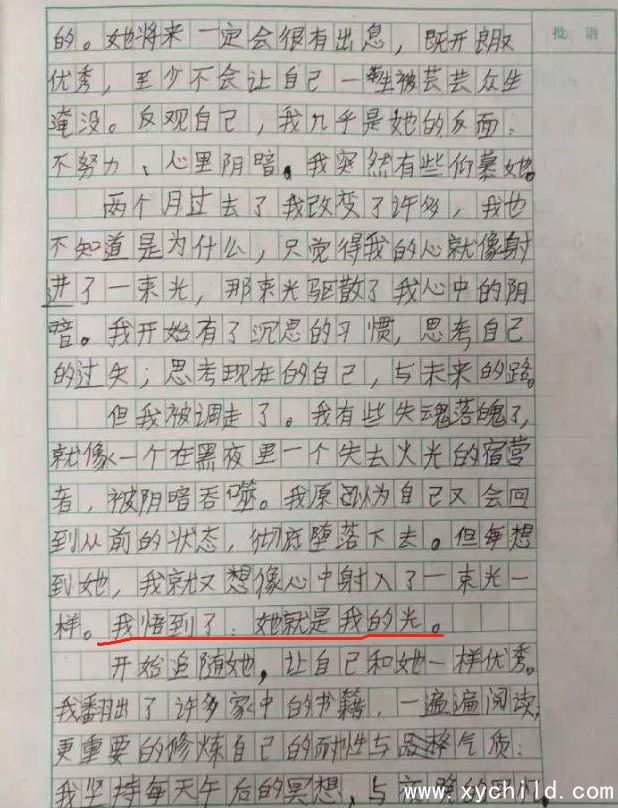 批 语
的。她将来一定会很有出息，既开朗又
优秀，至少不会让自己一生被芸芸众生
淹没。反观自己，我几乎是她的反面：
不努力、心里阴暗。我突然有些仰慕她。
两个月过去了我改变了许多，我也
不知道是为什么，只觉得我的心就像射
进了一束光，那束光驱散了我心中的阴
暗。我开始有了沉思的习惯，思考自己
的过失；思考现在的自己，与未来的路。
但我被调走了。我有些失魂落魄了，
就像一个在黑夜里一个失去火光的宿营
者，被阴暗吞噬。我原以为自己又会回
到从前的状态，彻底堕落下去。但每想
到她，我就又想像心中射入了一束光一
样。我悟到了：她就是我的光。
开始追随她，让自己和她一样优秀。
我翻出了许多家中的书籍，一遍遍阅读，
更重要的修炼自己的耐性与品格气质：
我坚持每天午后的冥想，与
www.xychild.com